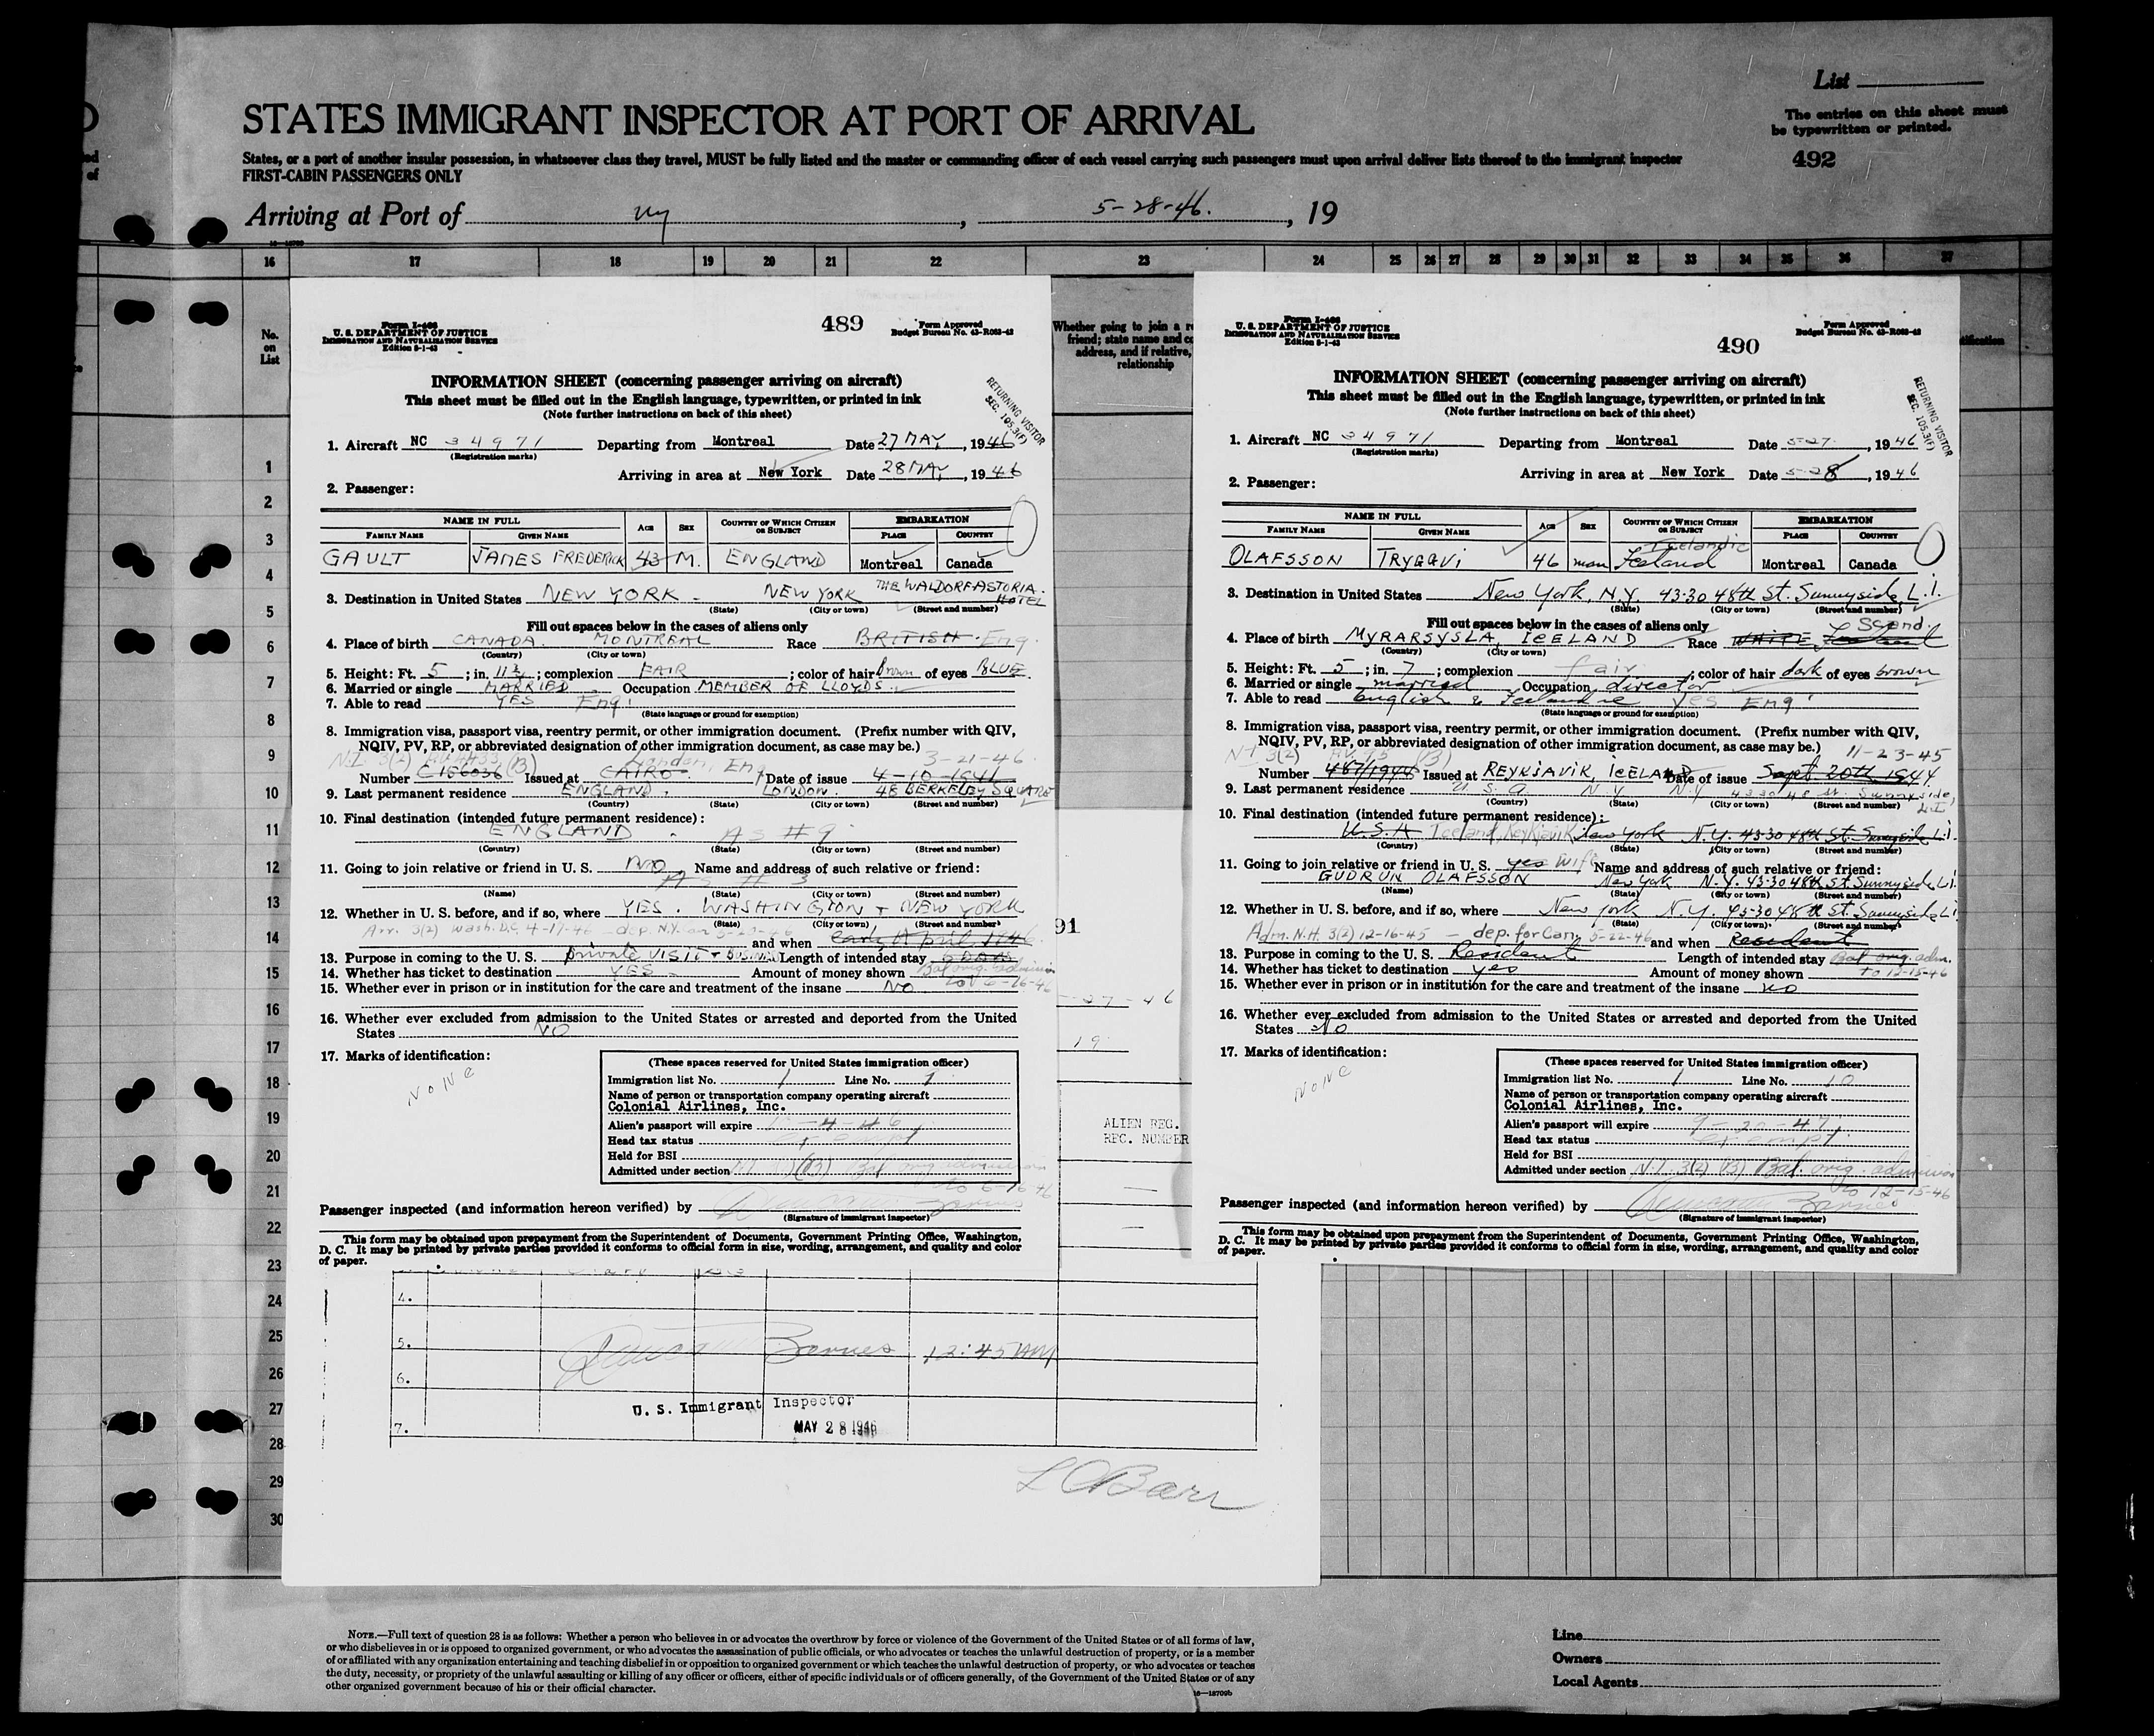 List
STATES IMMIGRANT INSPECTOR AT PORT OF ARRIVAL
The entries on this sheet must
be typewritten or printed.
States, or a port of another insular possession, in whatsoever class they travel, MUST be fully listed and the master or commanding officer of each vessel carrying such passengers must upon arrival deliver lists thereof to the immigrant inspector
492
FIRST-CABIN PASSENGERS ONLY
Arriving at Port of ny, 5-28-46., 19
16 17 18 19 20 21 22 23 24 25 26 27 28 29 30 31 32 33 34 35 36 37
No.
on
List
1
2
3
4
5
6
7
8
9
10
11
12
13
14
15
16
17
18
19
20
21
22
23
24
25
26
27
28
29
30
Form I-466
U. S. DEPARTMENT OF JUSTICE
IMMIGRATION AND NATURALIZATION SERVICE
Edition 5-1-43
489
Form Approved
Budget Bureau No. 43-R063-42
INFORMATION SHEET (concerning passenger arriving on aircraft)
This sheet must be filled out in the English language, typewritten, or printed in ink
(Note further instructions on back of this sheet)
RETURNING VISITOR
SEC. 105.3(F)
1. Aircraft NC 34971 Departing from Montreal Date 27 MAY, 1946
(Registration marks)
Arriving in area at New York Date 28 MAY, 1946
2. Passenger:
NAME IN FULL AGE SEX COUNTRY OF WHICH CITIZEN OR SUBJECT EMBARKATION
FAMILY NAME GIVEN NAME PLACE COUNTRY
GAULT JAMES FREDERICK 43 M. ENGLAND Montreal Canada
3. Destination in United States NEW YORK - NEW YORK THE WALDORF ASTORIA. HOTEL
(State) (City or town) (Street and number)
Fill out spaces below in the cases of aliens only
4. Place of birth CANADA. MONTREAL Race BRITISH. Eng.
(Country) (City or town)
5. Height: Ft. 5; in. 11½; complexion FAIR; color of hair Brown of eyes BLUE.
6. Married or single MARRIED Occupation MEMBER OF LLOYDS.
7. Able to read YES Eng.
(State language or ground for exemption)
8. Immigration visa, passport visa, reentry permit, or other immigration document. (Prefix number with QIV,
NQIV, PV, RP, or abbreviated designation of other immigration document, as case may be.)
N.I. 3(2) (B) London, Eng 3-21-46
Number C156036 Issued at CAIRO. Date of issue 4-10-1941
9. Last permanent residence ENGLAND. LONDON. 48 BERKELEY SQUARE
(Country) (State) (City or town) (Street and number)
10. Final destination (intended future permanent residence):
ENGLAND. As #9
(Country) (State) (City or town) (Street and number)
11. Going to join relative or friend in U. S. NO Name and address of such relative or friend:
As # 3
(Name) (State) (City or town) (Street and number)
12. Whether in U. S. before, and if so, where YES. WASHINGTON + NEW YORK
(State) (City or town) (Street and number)
Arr. 3(2) Wash. D.C. 4-17-46 - dep. N.Y. on 5-20-46 and when early April 1946
13. Purpose in coming to the U. S. private VISIT + BUSINESS Length of intended stay
14. Whether has ticket to destination YES - Amount of money shown Bal orig. admission
15. Whether ever in prison or in institution for the care and treatment of the insane NO to 6-16-46
16. Whether ever excluded from admission to the United States or arrested and deported from the United
States NO
17. Marks of identification:
None
(These spaces reserved for United States immigration officer)
Immigration list No. 1 Line No. 7
Name of person or transportation company operating aircraft
Colonial Airlines, Inc.
Alien's passport will expire -4-46
Head tax status exempt
Held for BSI
Admitted under section (B) Bal orig admission
to 6-16-46
Passenger inspected (and information hereon verified) by Barnes
(Signature of immigrant inspector)
This form may be obtained upon prepayment from the Superintendent of Documents, Government Printing Office, Washington,
D. C. It may be printed by private parties provided it conforms to official form in size, wording, arrangement, and quality and color
of paper.
Whether going to join a
friend; state name and
address, and if relative,
relationship
91
19
ALIEN REG.
REC. NUMBER
4.
5. Barnes 12:45 AM
6.
U. S. Immigrant Inspector
7. MAY 28 1946
L O Barr
Form I-466
U. S. DEPARTMENT OF JUSTICE
IMMIGRATION AND NATURALIZATION SERVICE
Edition 5-1-43
490
Form Approved
Budget Bureau No. 43-R063-42
INFORMATION SHEET (concerning passenger arriving on aircraft)
This sheet must be filled out in the English language, typewritten, or printed in ink
(Note further instructions on back of this sheet)
RETURNING VISITOR
SEC. 105.3(F)
1. Aircraft NC 34971 Departing from Montreal Date 5-27, 1946
(Registration marks)
Arriving in area at New York Date 5-28, 1946
2. Passenger:
NAME IN FULL AGE SEX COUNTRY OF WHICH CITIZEN OR SUBJECT EMBARKATION
FAMILY NAME GIVEN NAME PLACE COUNTRY
Icelandic
OLAFSSON TRYGGVI 46 man Iceland Montreal Canada
3. Destination in United States New York, N.Y. 43-30 48th St. Sunnyside, L.I.
(State) (City or town) (Street and number)
Fill out spaces below in the cases of aliens only
4. Place of birth MYRARSYSLA, ICELAND Race WHITE Scand.
(Country) (City or town)
5. Height: Ft. 5; in. 7; complexion fair; color of hair dark of eyes brown
6. Married or single married Occupation director
7. Able to read English & Icelandic Yes Eng.
(State language or ground for exemption)
8. Immigration visa, passport visa, reentry permit, or other immigration document. (Prefix number with QIV,
NQIV, PV, RP, or abbreviated designation of other immigration document, as case may be.)
N.I. 3(2) (B) 11-23-45
Number 487/1944 Issued at REYKJAVIK, ICELAND Date of issue Sept. 20th 1944
9. Last permanent residence U. S. A. N.Y. N.Y. 43-30 48 St. Sunnyside, L.I.
(Country) (State) (City or town) (Street and number)
10. Final destination (intended future permanent residence):
U.S.A Iceland, Reykjavik New York N.Y. 43-30 48th St. Sunnyside L.I.
(Country) (State) (City or town) (Street and number)
11. Going to join relative or friend in U. S. yes Wife Name and address of such relative or friend:
GUDRUN OLAFSSON New York N.Y. 43-30 48th St. Sunnyside L.I.
(Name) (State) (City or town) (Street and number)
12. Whether in U. S. before, and if so, where New York N.Y. 43-30 48th St. Sunnyside L.I
(State) (City or town) (Street and number)
Adm. N.H. 3(2) 12-16-45 - dep. for Can. 5-22-46 and when Resident
13. Purpose in coming to the U. S. Resident Length of intended stay Bal orig. adm.
14. Whether has ticket to destination yes Amount of money shown to 12-15-46
15. Whether ever in prison or in institution for the care and treatment of the insane no
16. Whether ever excluded from admission to the United States or arrested and deported from the United
States No
17. Marks of identification:
None
(These spaces reserved for United States immigration officer)
Immigration list No. 1 Line No. 10
Name of person or transportation company operating aircraft
Colonial Airlines, Inc.
Alien's passport will expire 9-20-47
Head tax status exempt
Held for BSI
Admitted under section N.I. 3(2) (B) Bal. orig. admission
to 12-15-46
Passenger inspected (and information hereon verified) by Barnes
(Signature of immigrant inspector)
This form may be obtained upon prepayment from the Superintendent of Documents, Government Printing Office, Washington,
D. C. It may be printed by private parties provided it conforms to official form in size, wording, arrangement, and quality and color
of paper.
NOTE.—Full text of question 28 is as follows: Whether a person who believes in or advocates the overthrow by force or violence of the Government of the United States or of all forms of law,
or who disbelieves in or is opposed to organized government, or who advocates the assassination of public officials, or who advocates or teaches the unlawful destruction of property, or is a member
of or affiliated with any organization entertaining and teaching disbelief in or opposition to organized government or which teaches the unlawful destruction of property, or who advocates or teaches
the duty, necessity, or propriety of the unlawful assaulting or killing of any officer or officers, either of specific individuals or of officers generally, of the Government of the United States or of any
other organized government because of his or their official character.
16—18709b
Line
Owners
Local Agents